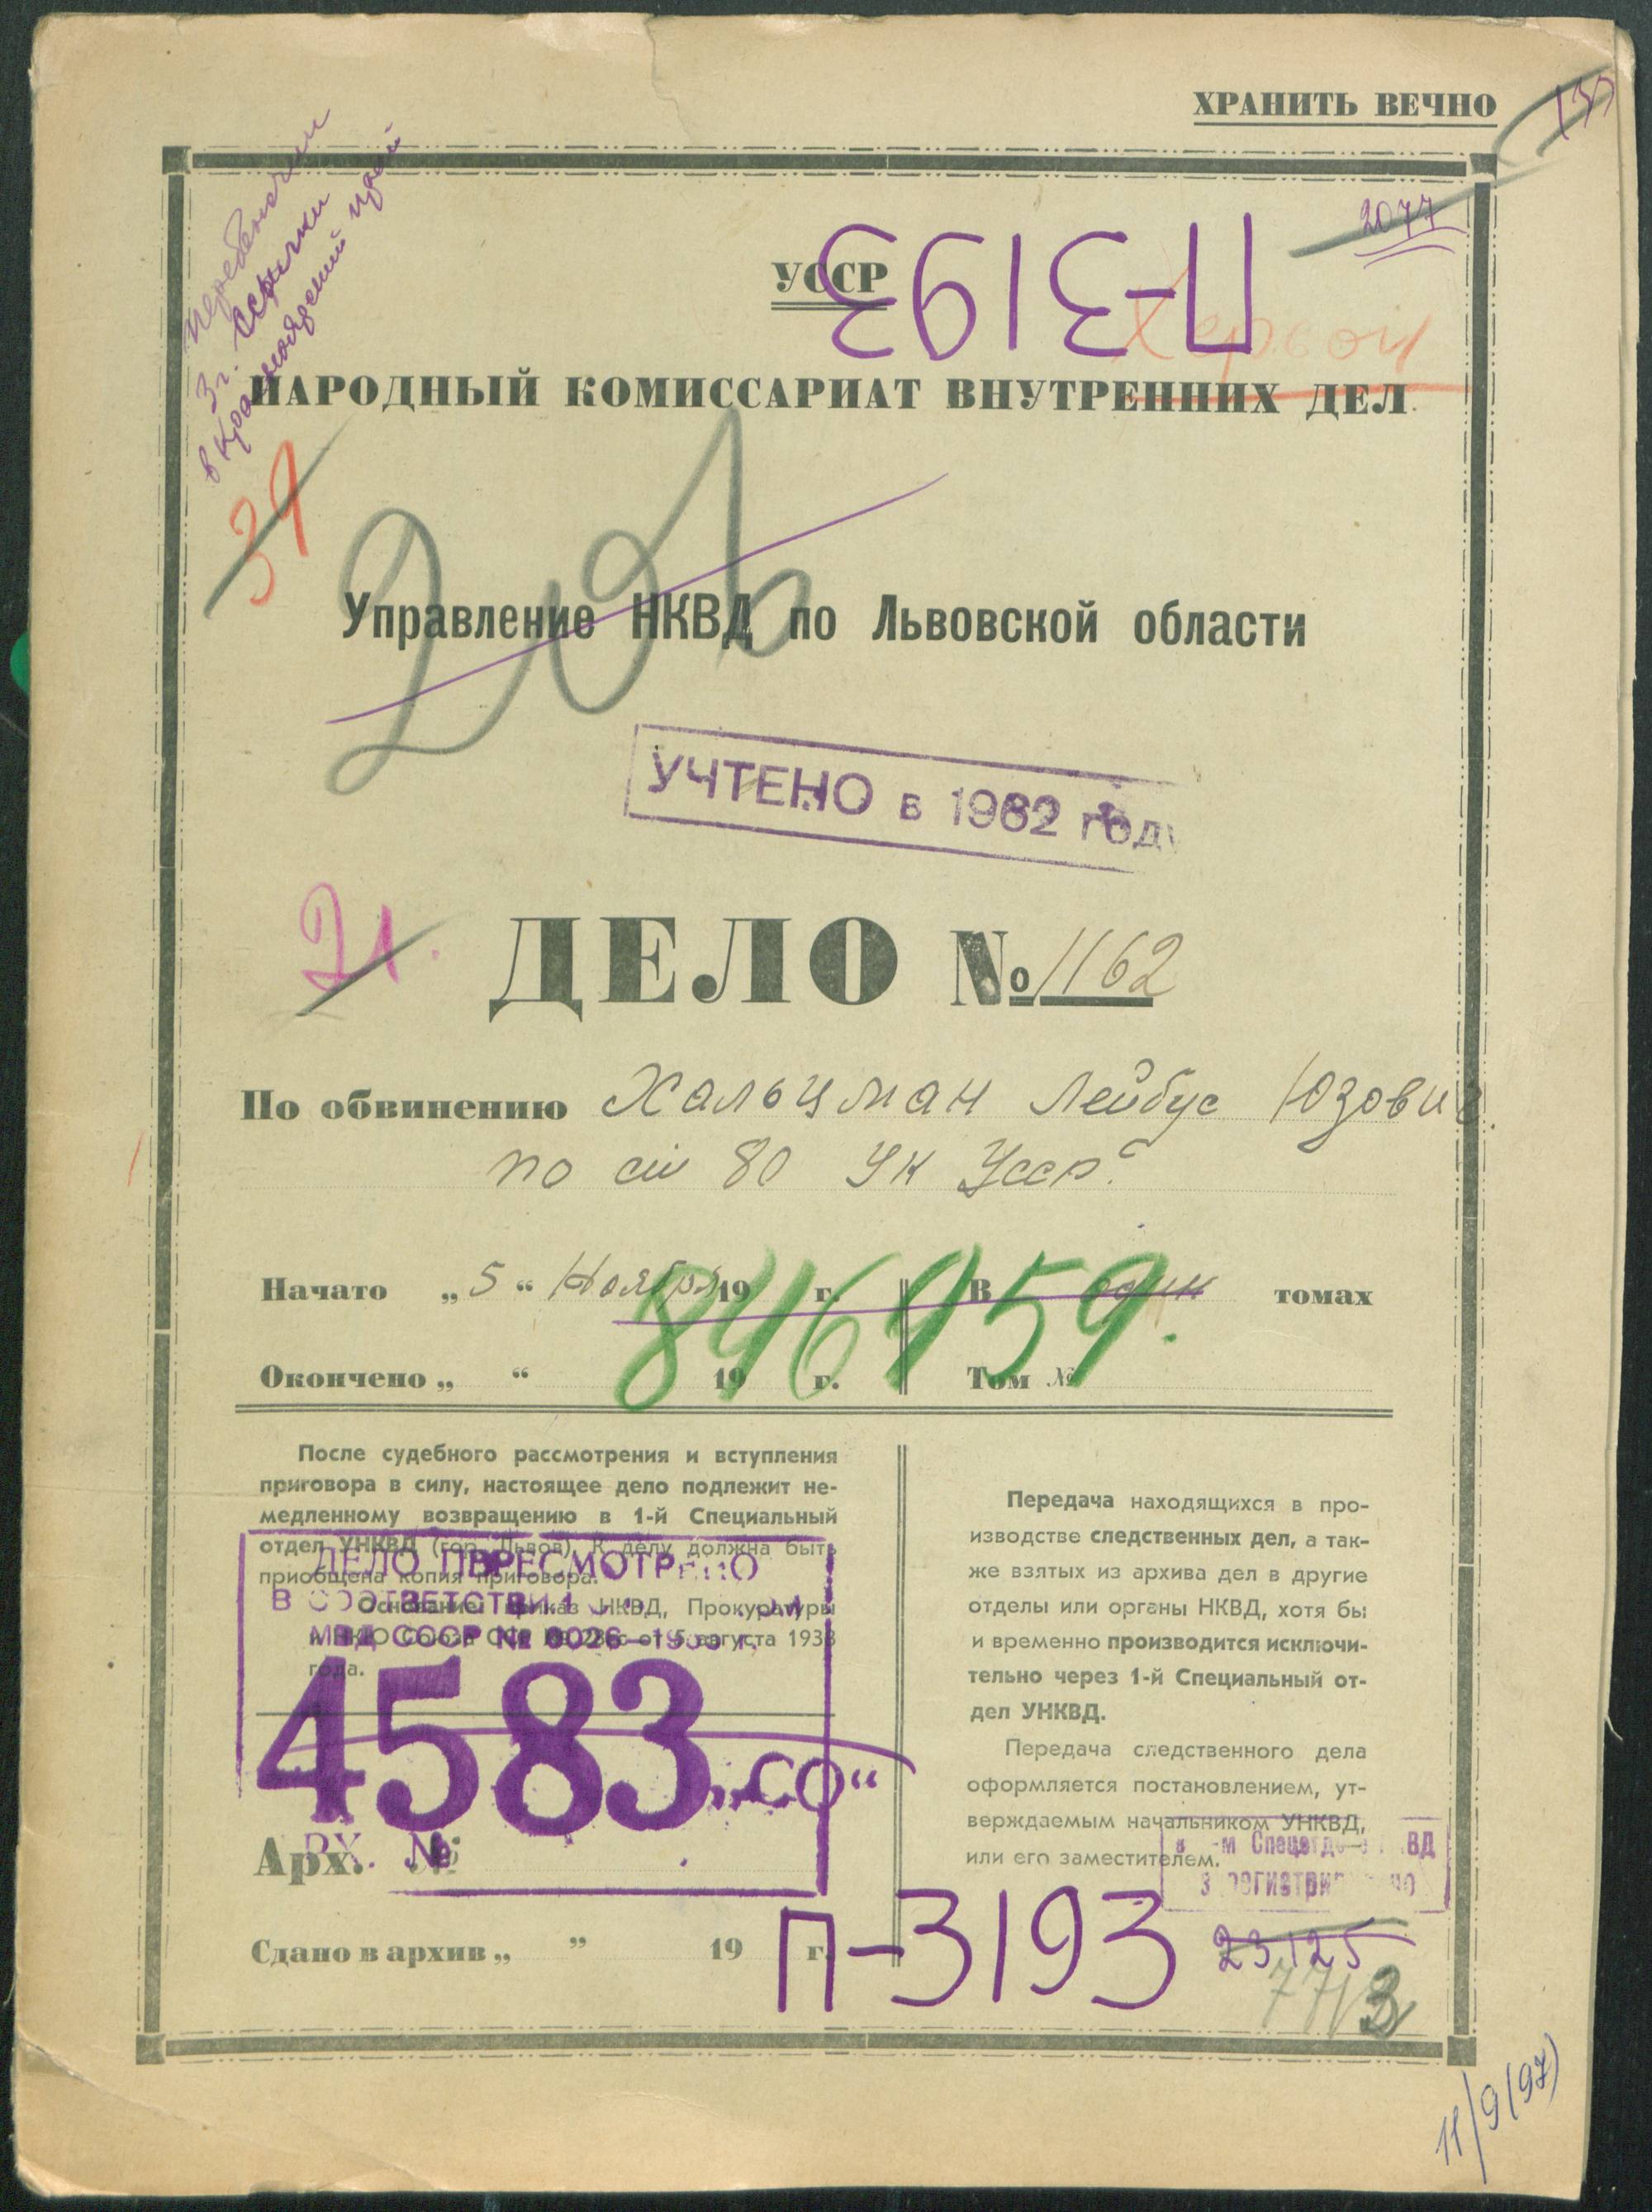 ХРАНИТЬ ВЕЧНО
2077
УССР
П-3193
НАРОДНЫЙ КОМИССАРИАТ ВНУТРЕННИХ ДЕЛ
3 г. ссылки
39
Управление НКВД по Львовской области
УЧТЕНО в 1962 году
21.
ДЕЛО № 1162
По обвинению Хальцман Лейбус Юзович.
по ст 80 УК УССР.
Начато „5“ Ноября 19 г. В один томах
846959.
Окончено „ “ 19 г. Том №
После судебного рассмотрения и вступления
приговора в силу, настоящее дело подлежит не-
медленному возвращению в 1-й Специальный
отдел УНКВД (гор. Львов). К делу должна быть
приобщена копия приговора.
Основание: приказ НКВД, Прокуратуры
и НКЮ Союза ССР от 5 августа 1938
года.
ДЕЛО ПЕРЕСМОТРЕНО
В СООТВЕТСТВИИ
МВД СССР № 0026—1955 г.
4583 „СО“
Арх. №
Вх. №
Сдано в архив „ ” 19 г.
Передача находящихся в про-
изводстве следственных дел, а так-
же взятых из архива дел в другие
отделы или органы НКВД, хотя бы
и временно производится исключи-
тельно через 1-й Специальный от-
дел УНКВД.
Передача следственного дела
оформляется постановлением, ут-
верждаемым начальником УНКВД,
или его заместителем.
П-3193
23125
7713
11/9(97)